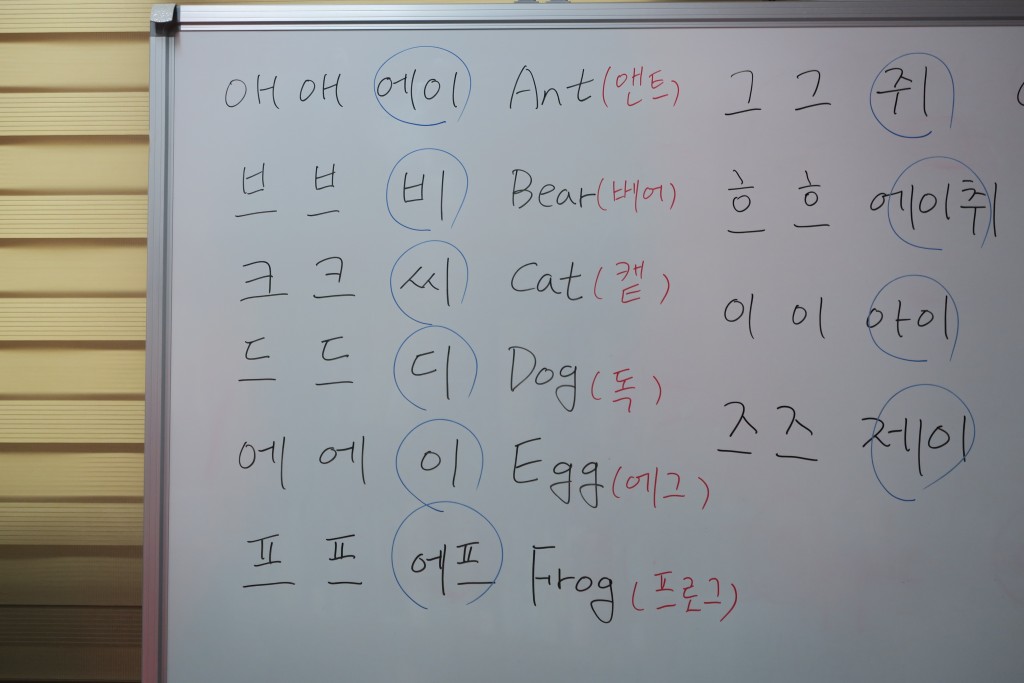 애 애 에이 Ant (앤트)
브 브 비 Bear (베어)
크 크 씨 Cat (캩)
드 드 디 Dog (독)
에 에 이 Egg (에그)
프 프 에프 Frog (프로그)
그 그 쥐
흐 흐 에이취
이 이 아이
즈 즈 제이